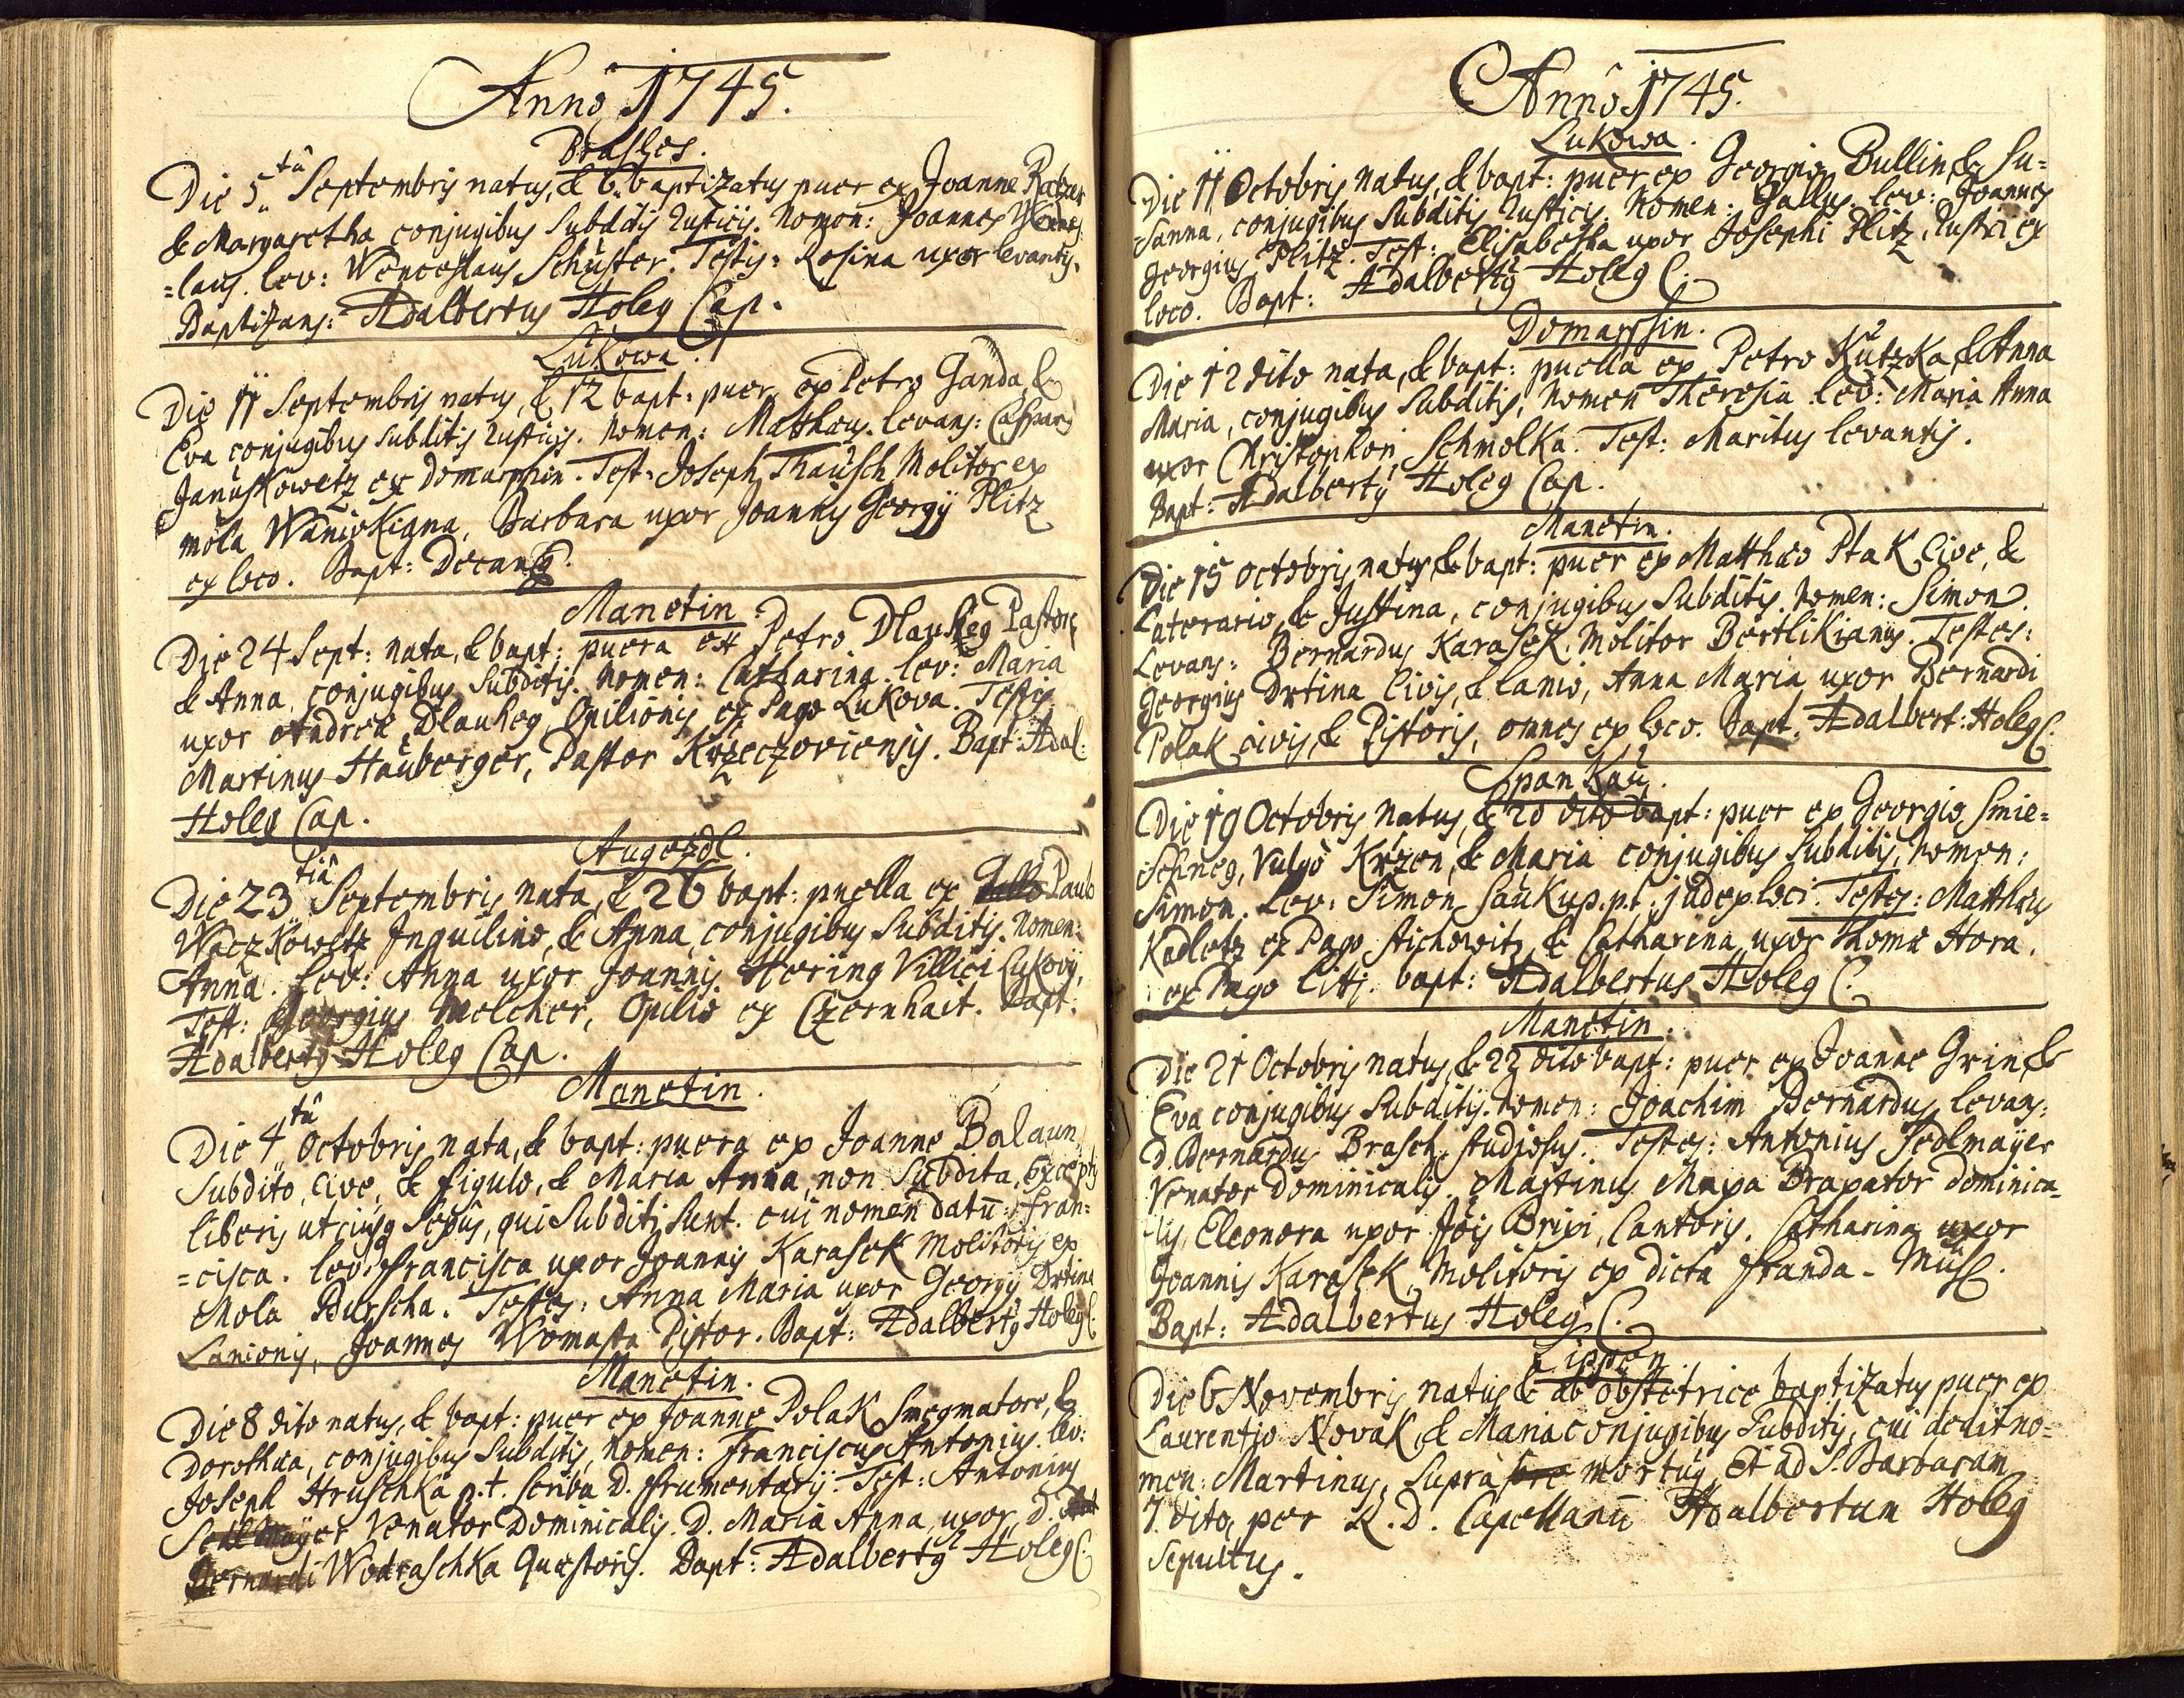 Anno 1745.
Brasches.
Die 5.tâ Septembris natus, & 6. baptizatus puer ex Joanne Ratzer
& Margaretha conjugibus Subditis rusticis. Nomen: Joannes
=laus. lev: Wenceslaus Schuster. Testis: Rosina uxor levantis.
Baptizans: Adalbertus Holeg Cap.
Lukowa.
Die 11 Septembris natus, & 12 bapt: puer ex Petro Ganda, &
Eva conjugibus subditis rusticis. Nomen: Matthæus. levans: Casparus
Januskowetz ex Domaschin. Test: Joseph Thausch Molitor ex
mola Waniokiana, Barbara uxor Joannis Georgij Plitz
ex loco. Bapt: Decanus.
Manetin.
Die 24 Sept: nata, & bapt: puera ex Petro Dlauheg Pastore
& Anna, conjugibus Subditis. Nomen: Catharina. lev: Maria
uxor Andreæ Dlauheg, Opilionis ex Pago Lukova. Testis
Martinus Hauberger, Pastor Krzeczoviensis. Bapt: Adal:
Holeg Cap.
Augezdl.
Die 23 tiâ Septembris nata, & 26 bapt: puella ex Paulo
Waczkowetz Inquilino, & Anna, conjugibus Subditis. Nomen:
Anna. lev: Anna uxor Joannis Hering Villici Lukovij,
Test: Georgius Melcher, Opilio ex Czernhait. Bapt:
Adalbertus Holeg Cap.
Manetin.
Die 4 tâ Octobris nata, & bapt: puera ex Joanne Balaun,
Subdito, Cive, & figulo, & Maria Anna, non Subdita, exceptis
liberis utriusq Sexûs, qui Subditi sunt. cui nomen datū: Fran=
=cisca. lev: Francisca uxor Joannis Karasek Molitoris ex
Mola Burscha. Testes: Anna Maria uxor Georgij Drtina
Lanionis, Joannes Womasta Pistor. Bapt: Adalbertus Holeg C.
Manetin.
Die 8 dito natus, & bapt: puer ex Joanne Polak Smegmatore, &
Dorothæa, conjugibus Subditis, Nomen: Franciscus Antonius. lev:
Joseph Hruschka p.t. Scriba D. Frumentarij. Test: Antonius
Sedlmayer Venator Dominicalis. D. Maria Anna, uxor D.
Bernardi Wodraschka Quæstoris. Bapt: Adalbertus Holeg C.
Anno 1745.
Lukowa.
Die 11 Octobris natus, & bapt: puer ex Georgio Bullin, & Su=
sanna, conjugibus Subditis rusticis. Nomen: Gallus. lev: Joannes
Georgius Plitz. Test: Elisabetha uxor Josephi Plitz, Rustici ex
loco. Bapt: Adalbertus Holeg C.
Domaschin.
Die 12 dito nata, & bapt: puella ex Petro Kutzka, & Anna
Maria, conjugibus Subditis, Nomen Theresia. lev: Maria Anna
uxor Christophori Schmolka. Test: Maritus levantis.
Bapt: Adalbertus Holeg Cap.
Manetin.
Die 15 Octobris natus, & bapt: puer ex Matthæo Ptak Cive, &
Laterario, & Justina, conjugibus Subditis. Nomen: Simon.
Levans: Bernardus Karasek, Molitor Bertlikianus. Testes:
Georgius Drtina Civis, & lanio, Anna Maria uxor Bernardi
Polak civis, & Pistoris, omnes ex loco. Bapt. Adalbert: Holeg C.
Spankau.
Die 19 Octobris natus, & 20 dito bapt: puer ex Georgio Smie=
Schneg, Vulgò Krzen, & Maria conjugibus Subditis, Nomen:
Simon. Lev: Simon Saukup. p.t. judex loci. Testes: Matthæus
Kadletz ex Pago Stichowitz, & Catharina, uxor Thomæ Hora.
ex Pago Litj. bapt: Adalbertus Holeg C.
Manetin.
Die 21 Octobris natus, & 22 dito bapt: puer ex Joanne Grin &
Eva conjugibus Subditis. Nomen: Joachim Bernardus, levans:
D. Bernardus Brasch, Studiosus. Testes: Antonius Sedlmayer
Venator Dominicalis. Martinus Maxa Braxator Dominica=
lis, Eleonora uxor Jois Brixi, Cantoris. Catharina uxor
Joannis Karasek, Molitoris ex dicta Franda-Mühl.
Bapt: Adalbertus Holeg C.
Lippen
Die 6 Novembris natus & ab obstetrice baptizatus puer ex
Laurentio Novak, & Maria conjugibus Subditis, cui dedit no=
men: Martinus, supra mortuus, Et ad S. Barbaram
7. dito, per R. D. Capellanū Adalbertum Holeg
Sepultus.